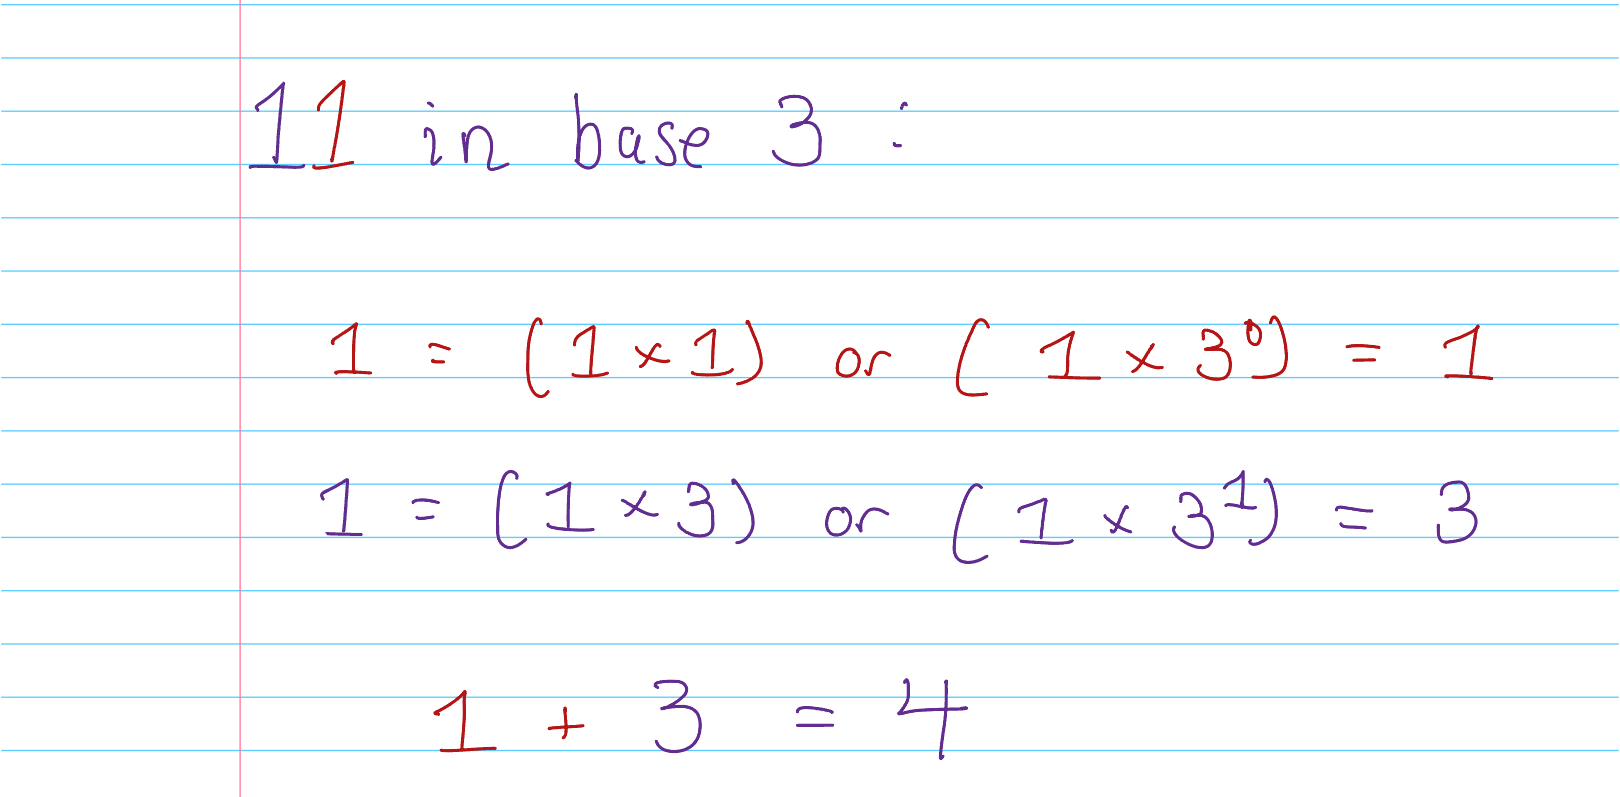 11 in base 3 :
1 = (1 × 1) or (1 × 3⁰) = 1
1 = (1 × 3) or (1 × 3¹) = 3
1 + 3 = 4